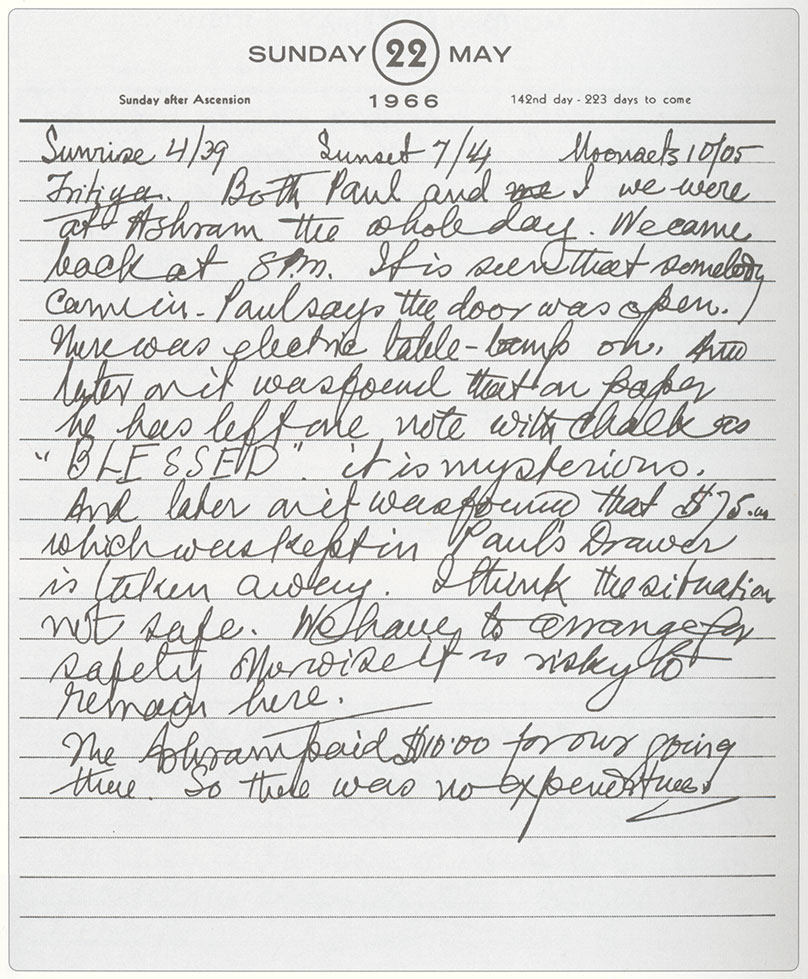 SUNDAY 22 MAY
Sunday after Ascension 1966 142nd day - 223 days to come
Sunrise 4/39 Sunset 7/41 Moonsets 10/05
Tritiya. Both Paul and me I we were
at Ashram the whole day. We came
back at 8 P.M. It is seen that somebody
came in - Paul says the door was open.
There was electric table-lamp on. And
later on it was found that on paper
he has left one note with chalk as
"BLESSED". it is mysterious.
And later on it was found that $75.00
which was kept in Paul's Drawer
is taken away. I think the situation
not safe. We have to arrange for
safety otherwise it is risky to
remain here.
The Ashram paid $10.00 for our going
there. So there was no expenditures.